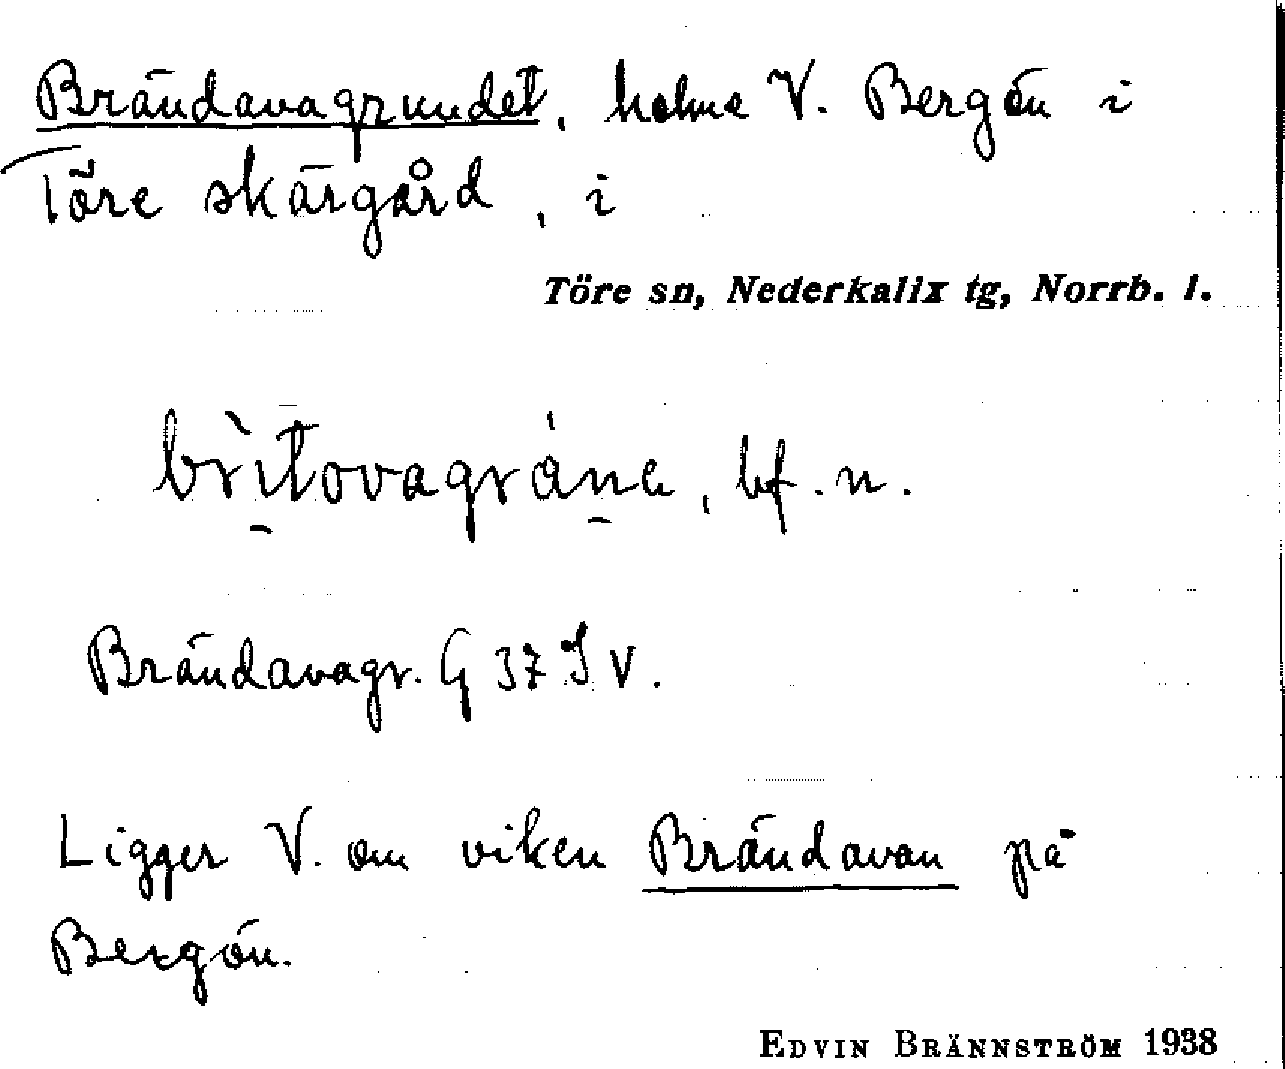 Brändavagrundet, holme V. Bergön i
Töre skärgård, i
Töre sn, Nederkalix tg, Norrb. l.
bf. n.
Brändavagr. G 37 J V.
Ligger V. om viken Brändavan på
Bergön.
EDVIN BRÄNNSTRÖM 1938